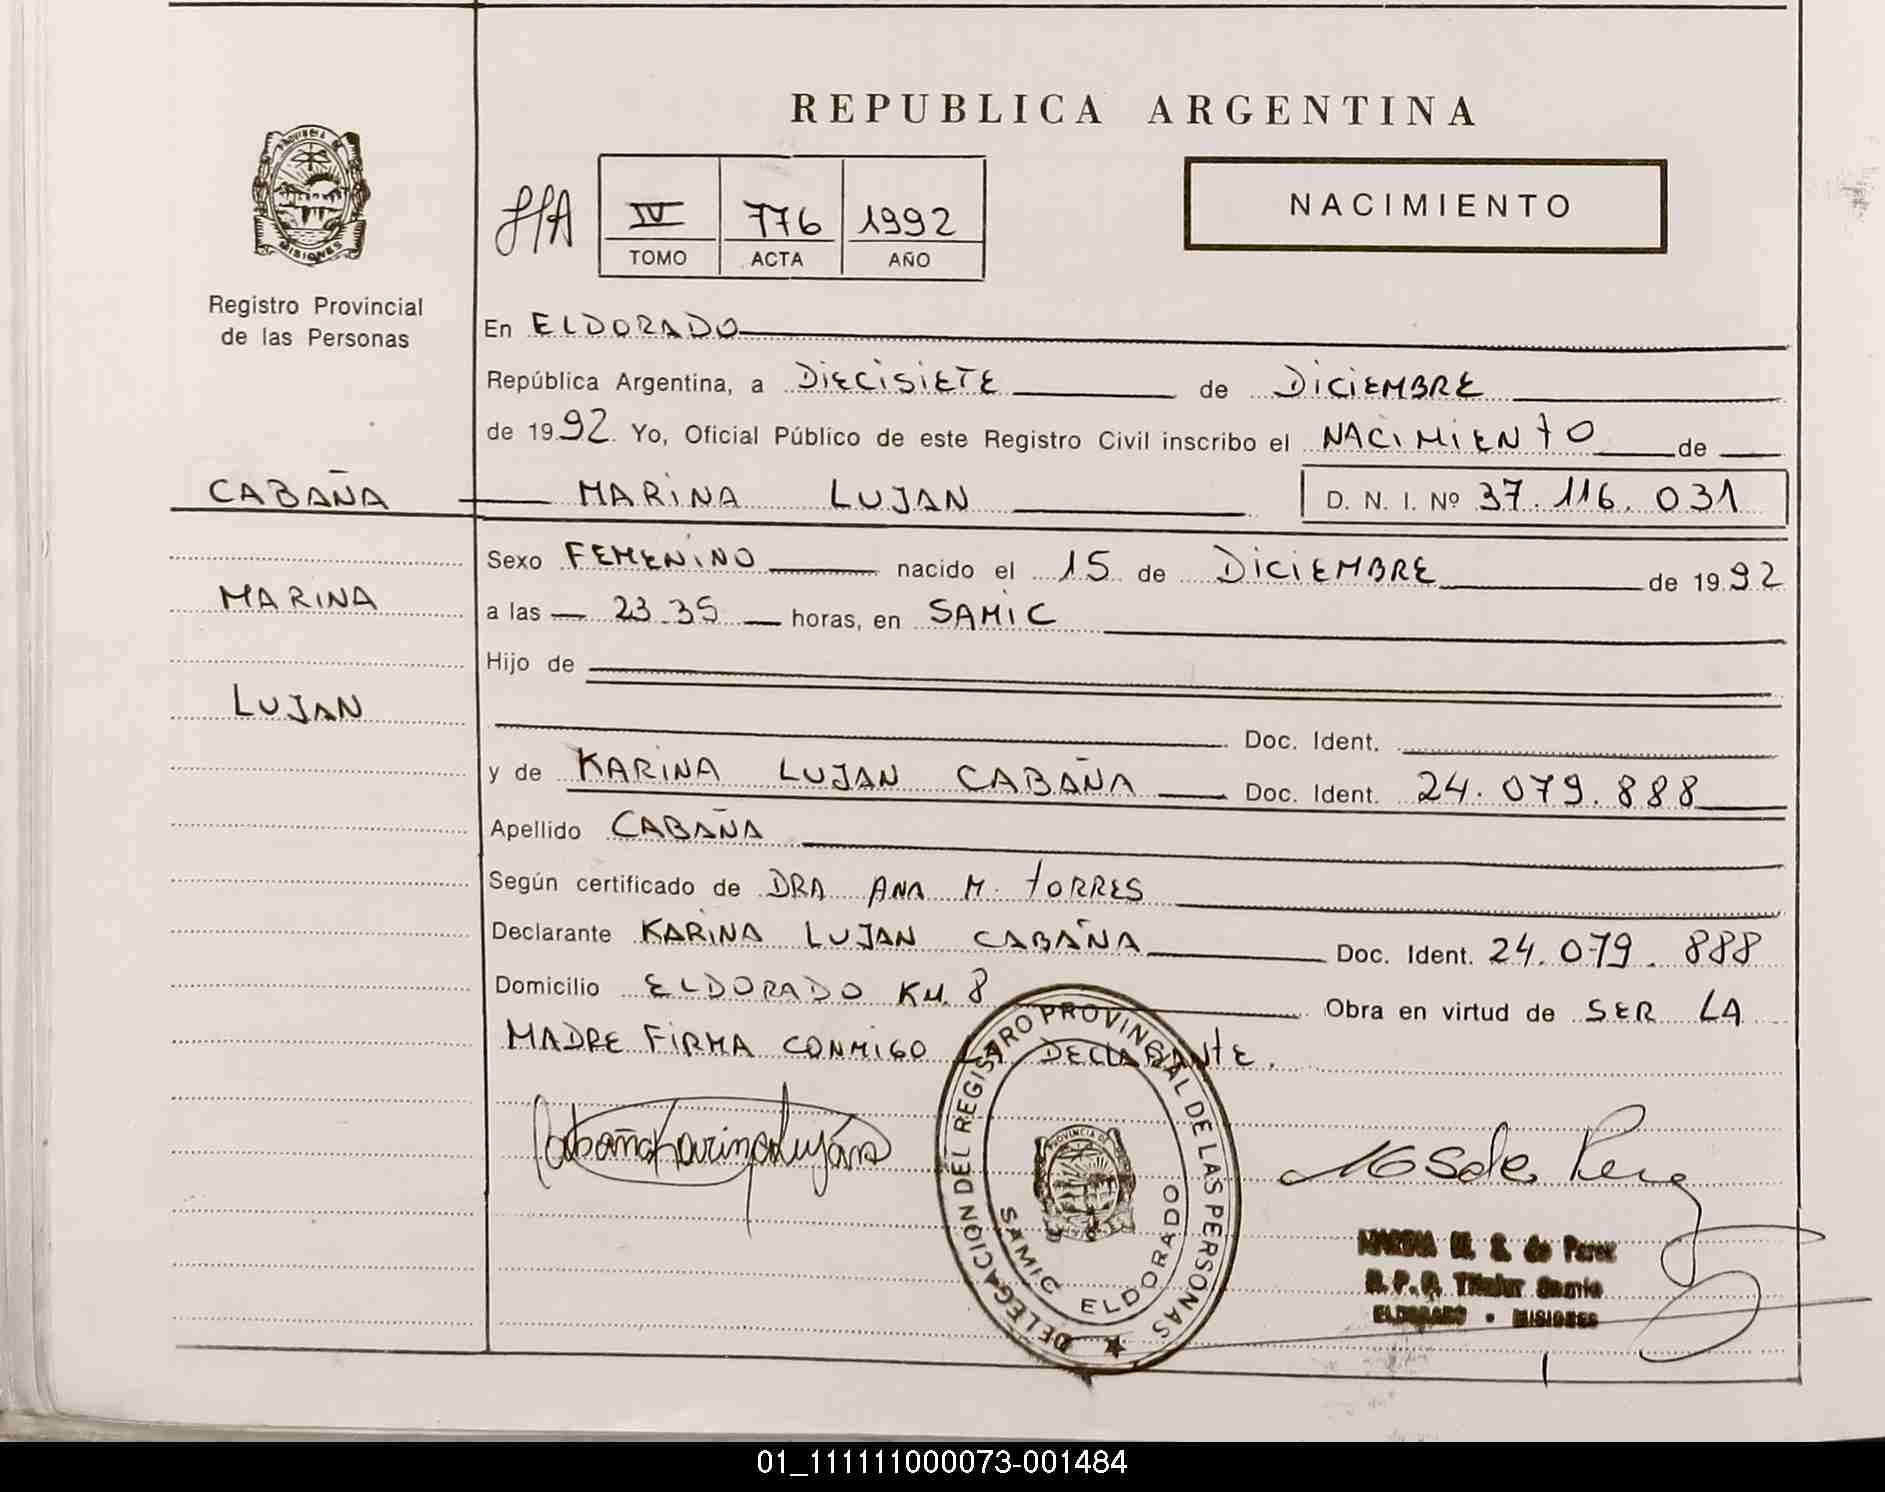 REPUBLICA ARGENTINA
PROVINCIA DE
MISIONES
Registro Provincial
de las Personas
IV 776 1992
TOMO ACTA AÑO
NACIMIENTO
En ELDORADO
República Argentina, a DIECISIETE de DICIEMBRE
de 1992. Yo, Oficial Público de este Registro Civil inscribo el NACIMIENTO de
CABAÑA MARINA LUJAN D. N. I. Nº 37.116.031
Sexo FEMENINO nacido el 15 de DICIEMBRE de 1992
MARINA
a las 23.35 horas, en SAMIC
Hijo de
LUJAN
Doc. Ident.
y de KARINA LUJAN CABAÑA Doc. Ident. 24.079.888
Apellido CABAÑA
Según certificado de DRA ANA M. TORRES
Declarante KARINA LUJAN CABAÑA Doc. Ident. 24.079.888
Domicilio ELDORADO KM. 8 Obra en virtud de SER LA
MADRE FIRMA CONMIGO LA DECLARANTE.
Cabaña Karina Luján
DELEGACION DEL REGISTRO PROVINCIAL DE LAS PERSONAS
PROVINCIA DE
SAMIC ELDORADO
MARINA M. S. de Perez
Titular Samic
ELDORADO • MISIONES
01_111111000073-001484